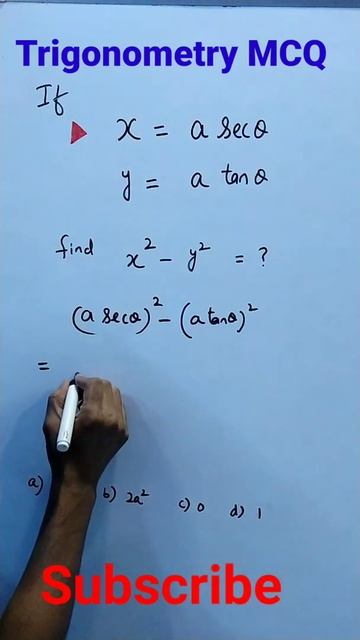 Trigonometry MCQ
If
x = a secθ
y = a tanθ
find x² - y² = ?
(a secθ)² - (a tanθ)²
=
a) b) 2a² c) 0 d) 1
Subscribe